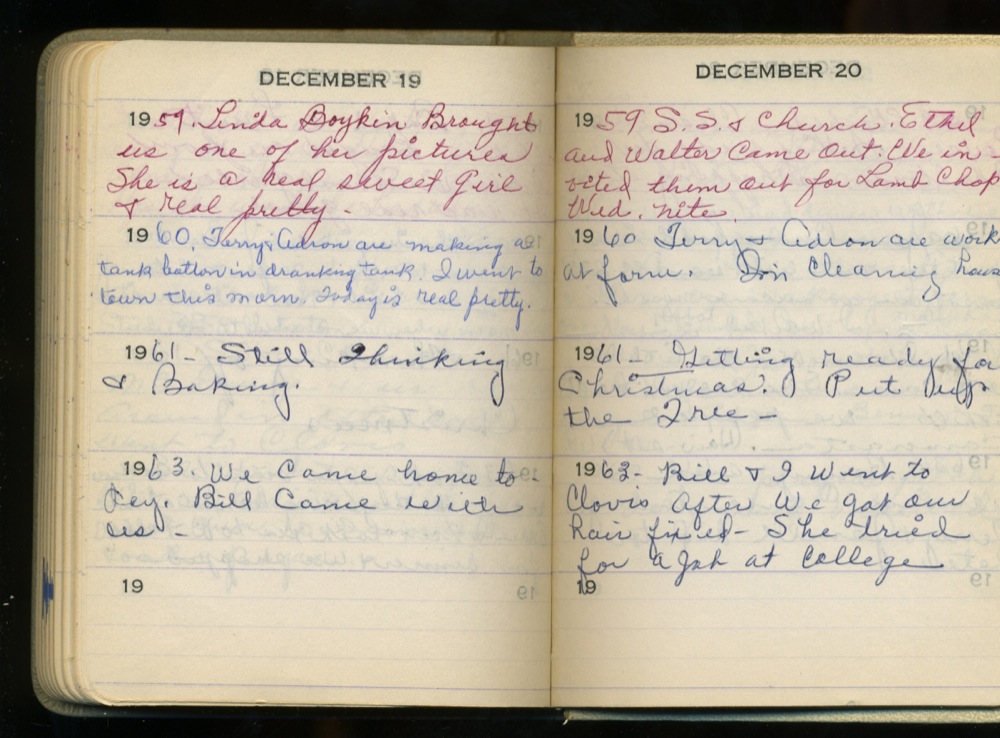 DECEMBER 19
1959. Linda Boykin Brought
us one of her pictures
She is a real sweet Girl
& real pretty -
1960. Terry & Adron are making a
tank bottom in dranking tank. I went to
town this morn. Today is real pretty.
1961 - Still Thinking
& Baking.
1963. We Came home to-
day. Bill Came with
us -
19
DECEMBER 20
1959 S.S. & Church. Ethel
and Walter Came Out. We in -
vited them out for Lamb Chop
Wed. nite.
1960 Terry & Adron are work
at farm. I'm Cleaning hous
1961 - Getting ready for
Christmas. Put up
the Tree -
1963 - Bill & I Went to
Clovis After We got our
hair fixed - She tried
for a Job at College
19